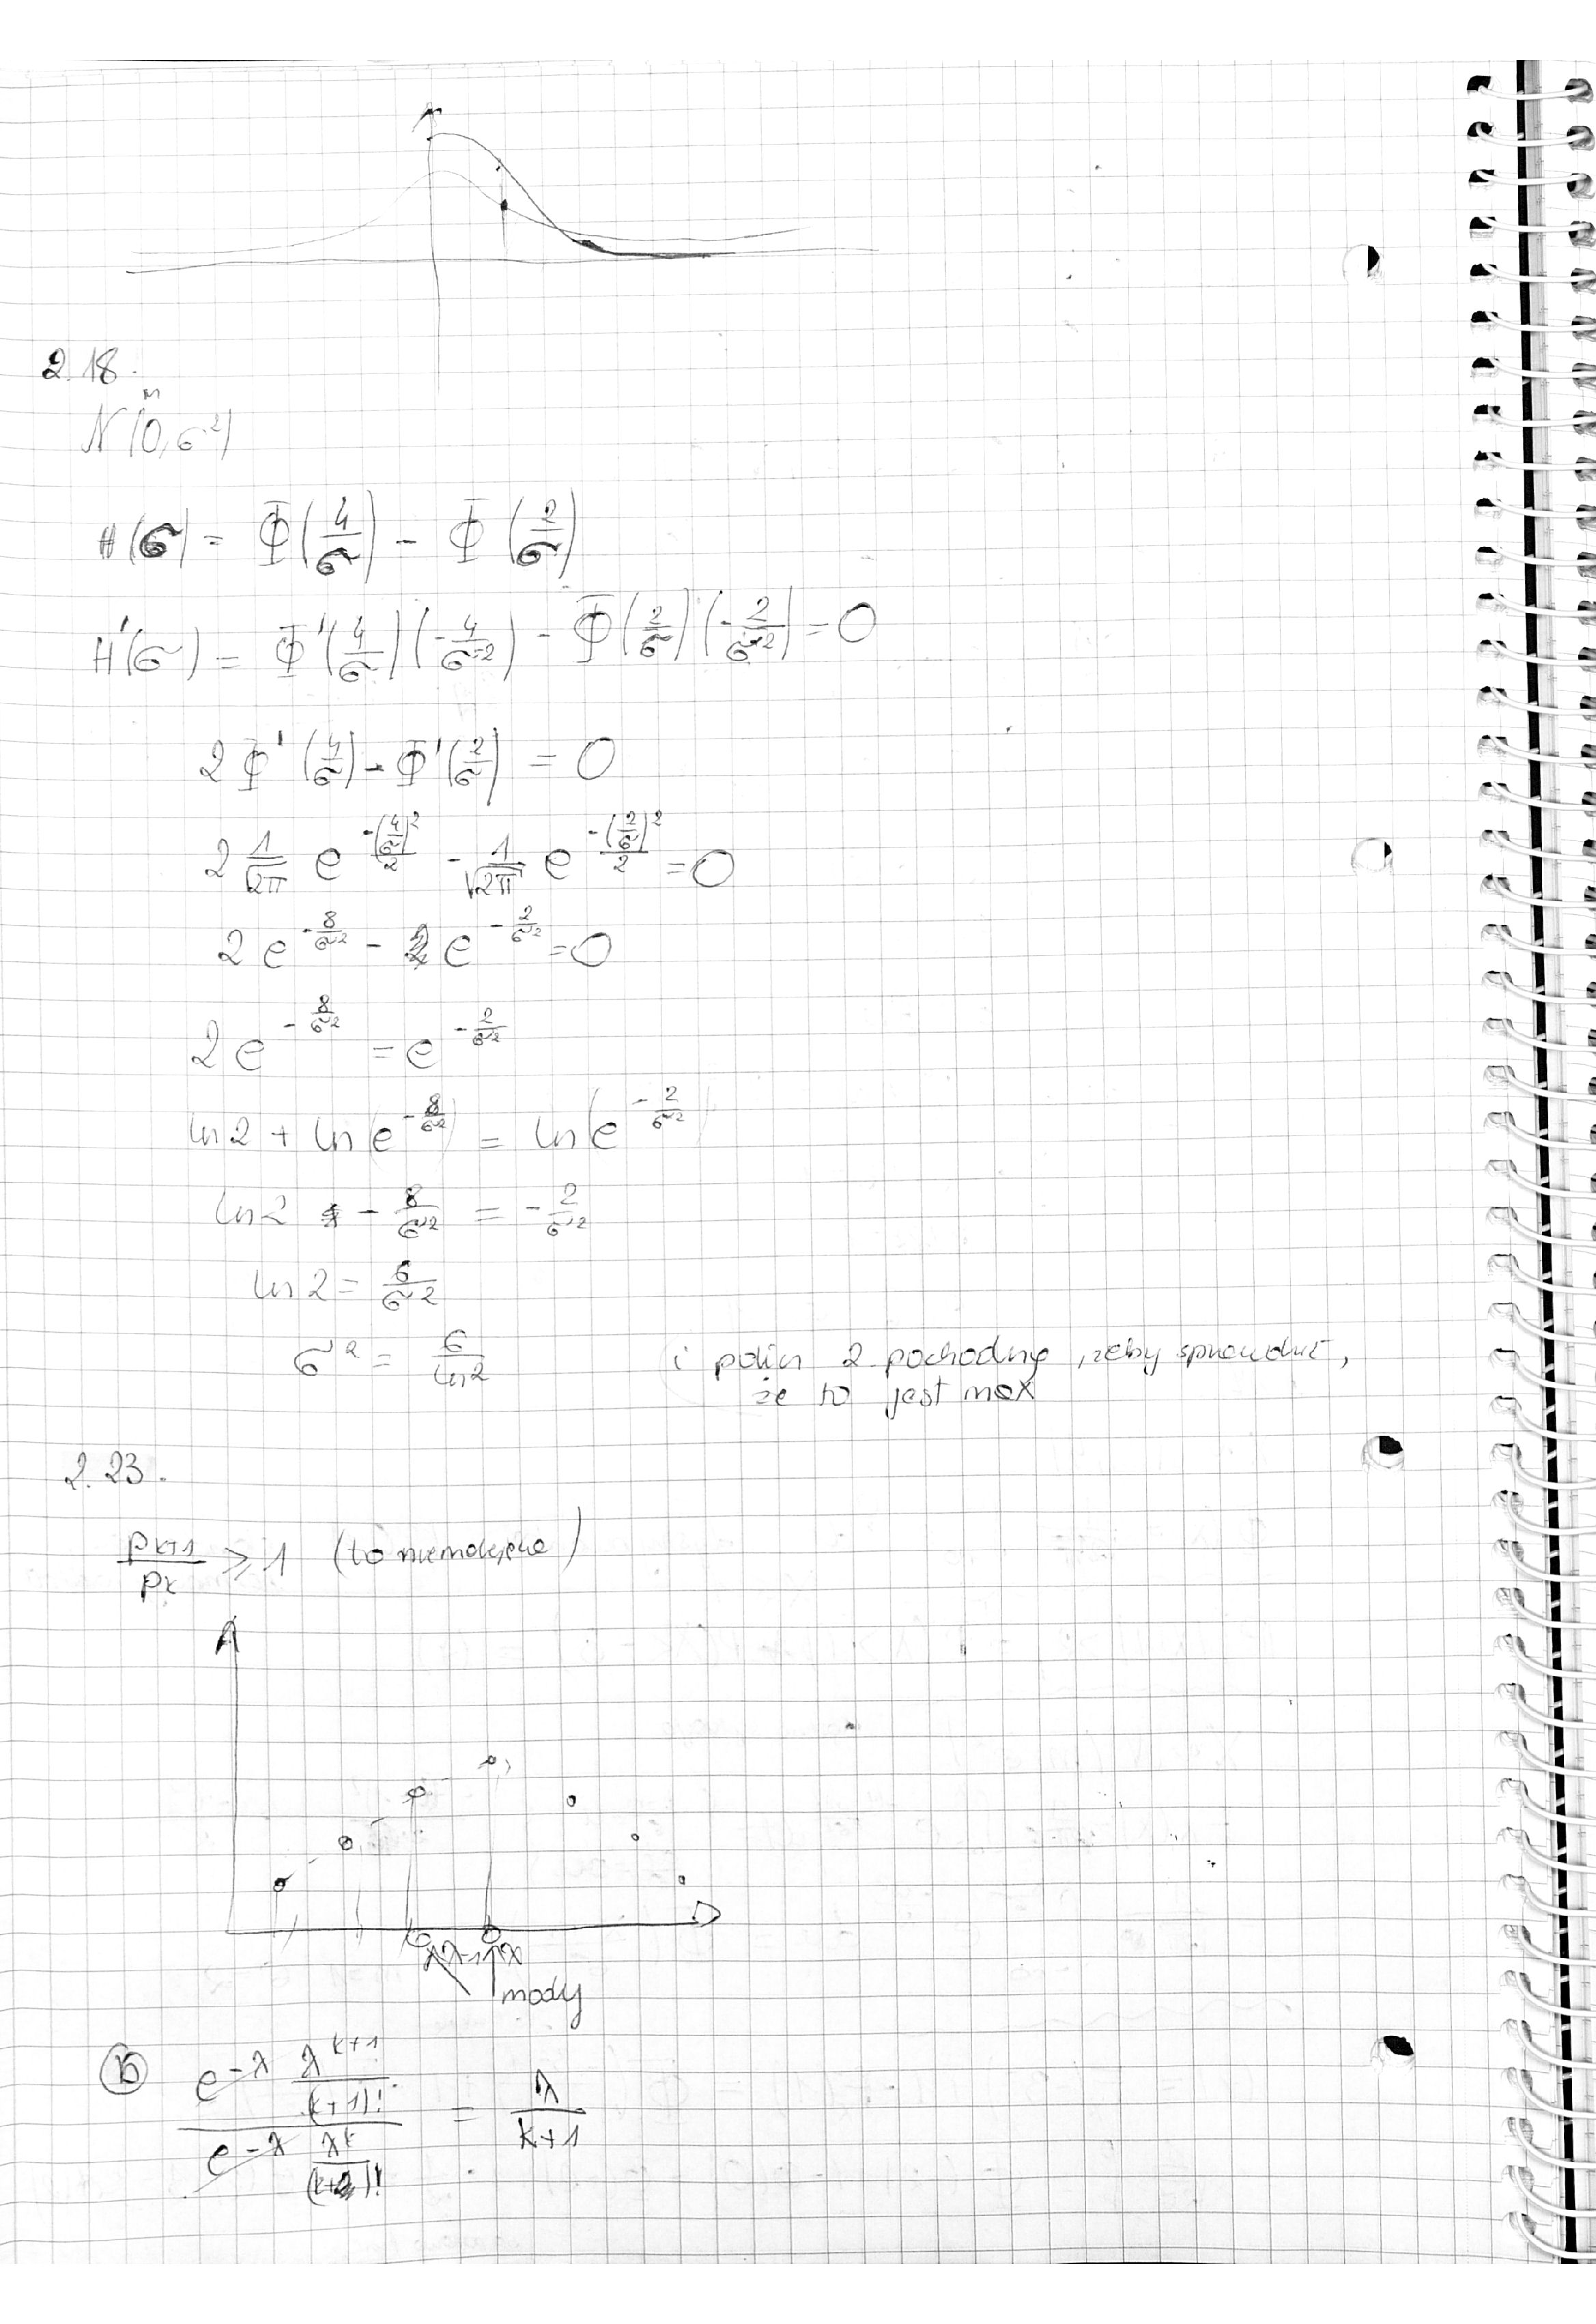 2.18.
m
N(0,σ²)
H(σ) = Φ(4/σ) - Φ(2/σ)
H'(σ) = Φ'(4/σ)(-4/σ²) - Φ(2/σ)(-2/σ²) = 0
2Φ'(4/σ) - Φ'(2/σ) = 0
2 1/√2π e^(-(4/σ)²/2) - 1/√2π e^(-(2/σ)²/2) = 0
2e^(-8/σ²) - e^(-2/σ²) = 0
2e^(-8/σ²) = e^(-2/σ²)
ln2 + ln(e^(-8/σ²)) = ln(e^(-2/σ²))
ln2 - 8/σ² = -2/σ²
ln2 = 6/σ²
σ² = 6/ln2 i policz 2 pochodną, żeby sprawdzić,
że to jest max
2.23.
pk+1/pk ≥ 1 (to niemalejące)
λ-1 λ
mody
b e^-λ λ^(k+1)/(k+1)! / e^-λ λ^k/ = λ/k+1